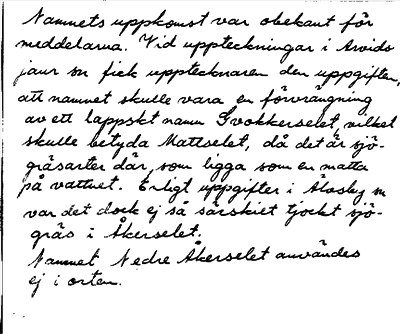 Namnets uppkomst var obekant för
meddelarna. Vid uppteckningar i Arvids
jaur sn fick upptecknaren den uppgiften,
att namnet skulle vara en förvrängning
av ett lappskt namn Svokkerselet, vilket
skulle betyda Mattselet, då det är sjö-
gräsarter där, som ligga som en matta
på vattnet. Enligt uppgifter i Älvsby sn
var det dock ej så särskilt tjockt sjö-
gräs i Åkerselet.
Namnet Nedre Åkerselet användes
ej i orten.